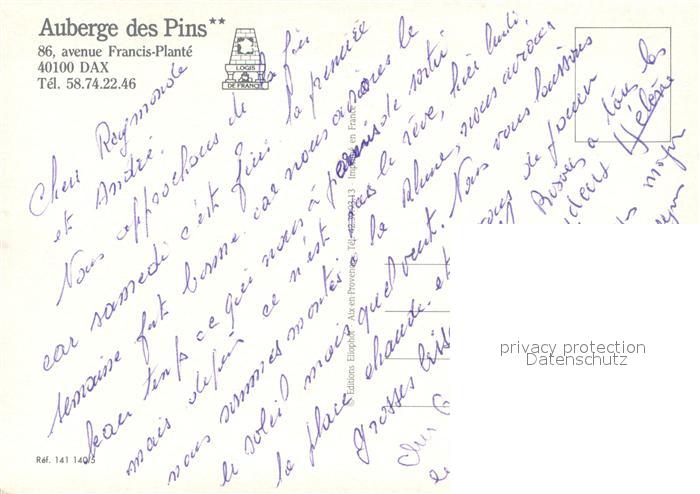 Auberge des Pins**
86, avenue Francis-Planté
40100 DAX
Tél. 58.74.22.46
LOGIS
DE FRANCE
Chers Raymonde
et André.
Nous approchons de la fin
car samedi c'est fini. La première
semaine fut bonne. car nous avions le
beau temps ce qui nous à permis de sortir
mais depuis ce n'est pas le rêve, hier lundi,
nous sommes montés à la Rhune, nous avons
le soleil mais quel vent. Nous vous laissons
la place chaude. et
grosses bises
Bisous à tous les
Hélène
© Editions Eliophot Aix-en-Provence Tél.
Imprimé en France
privacy protection
Datenschutz
Réf. 141 140/5